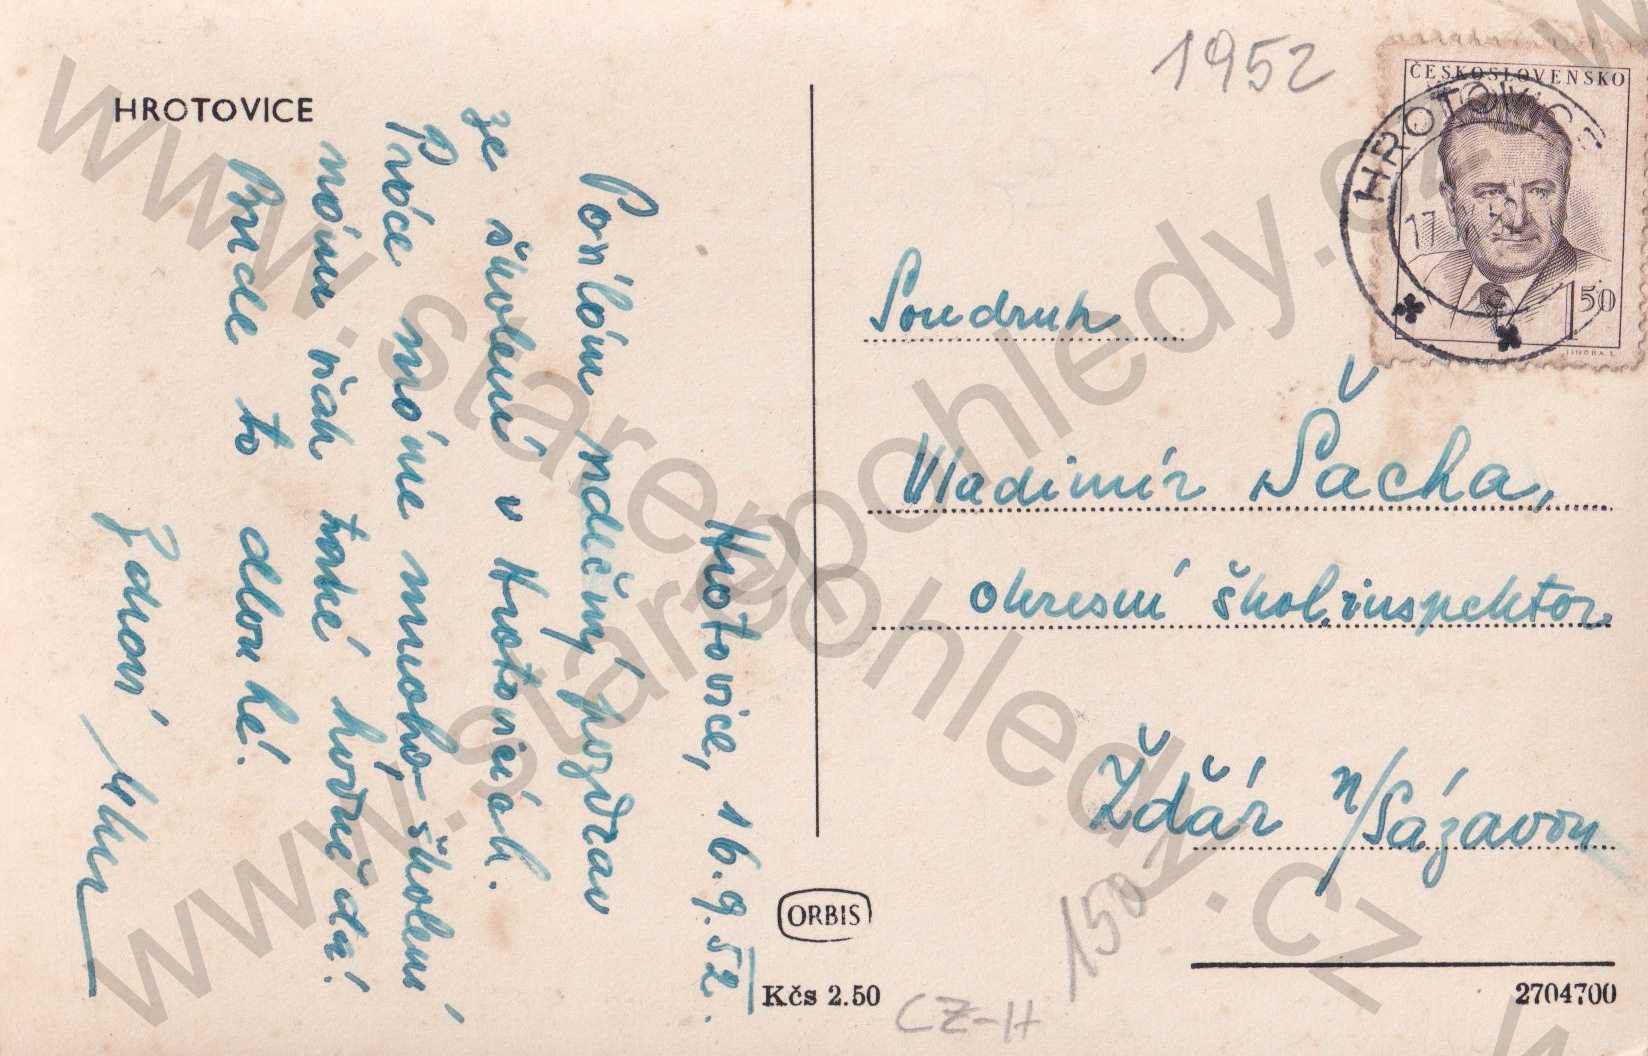 HROTOVICE
Hrotovice, 16.9.52.
Posílám srdečný pozdrav
ze školení v Hrotovicích.
Práce máme mnoho, školení
nám však také hodně dá!
Bude to dlouhé!
Zdraví
1952
ČESKOSLOVENSKO
1.50
HROTOVICE
17
Soudruh
Vladimír Šacha,
okresní škol. inspektor
Žďár n/Sázavou
ORBIS
Kčs 2.50
2704700
150
CZ-H
www.starepohledy.cz
www.starepohledy.cz